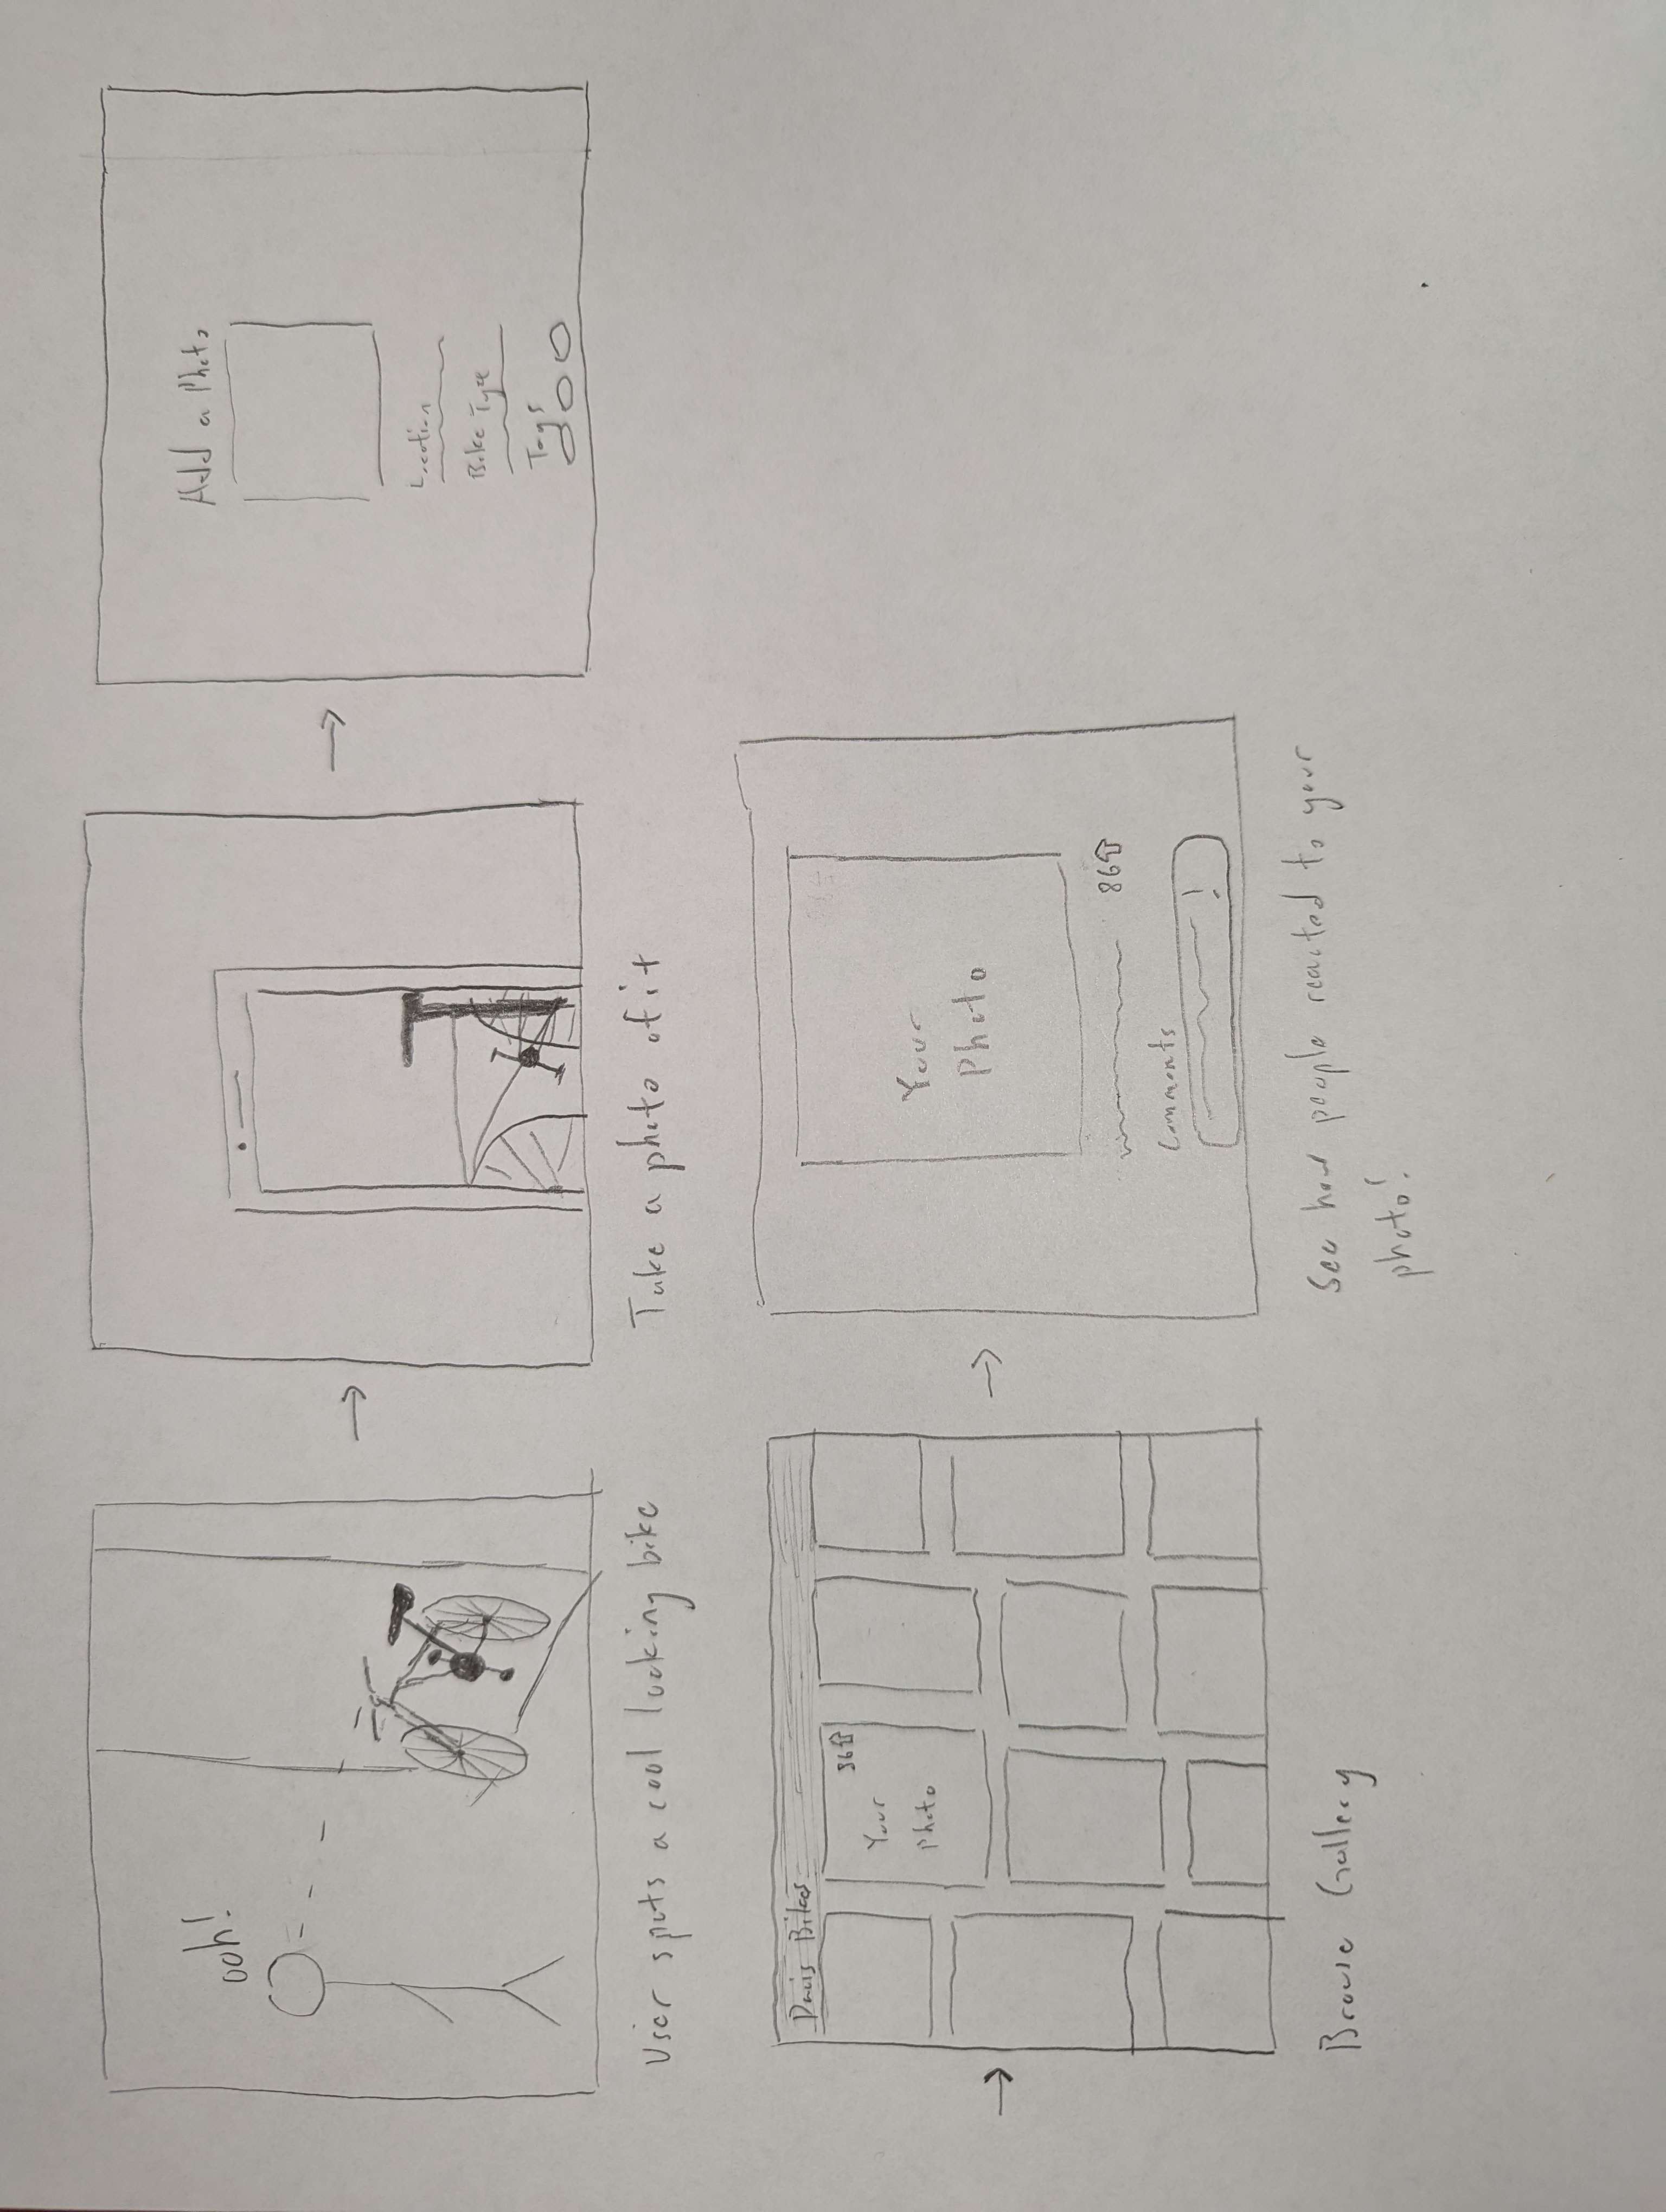 ooh!
User spots a cool looking bike
Take a photo of it
Add a Photo
Location
Bike Type
Tags
Davis Bikes
86
Your
Photo
Browse Gallery
Your
Photo
86
Comments
!
See how people reacted to your
photo!